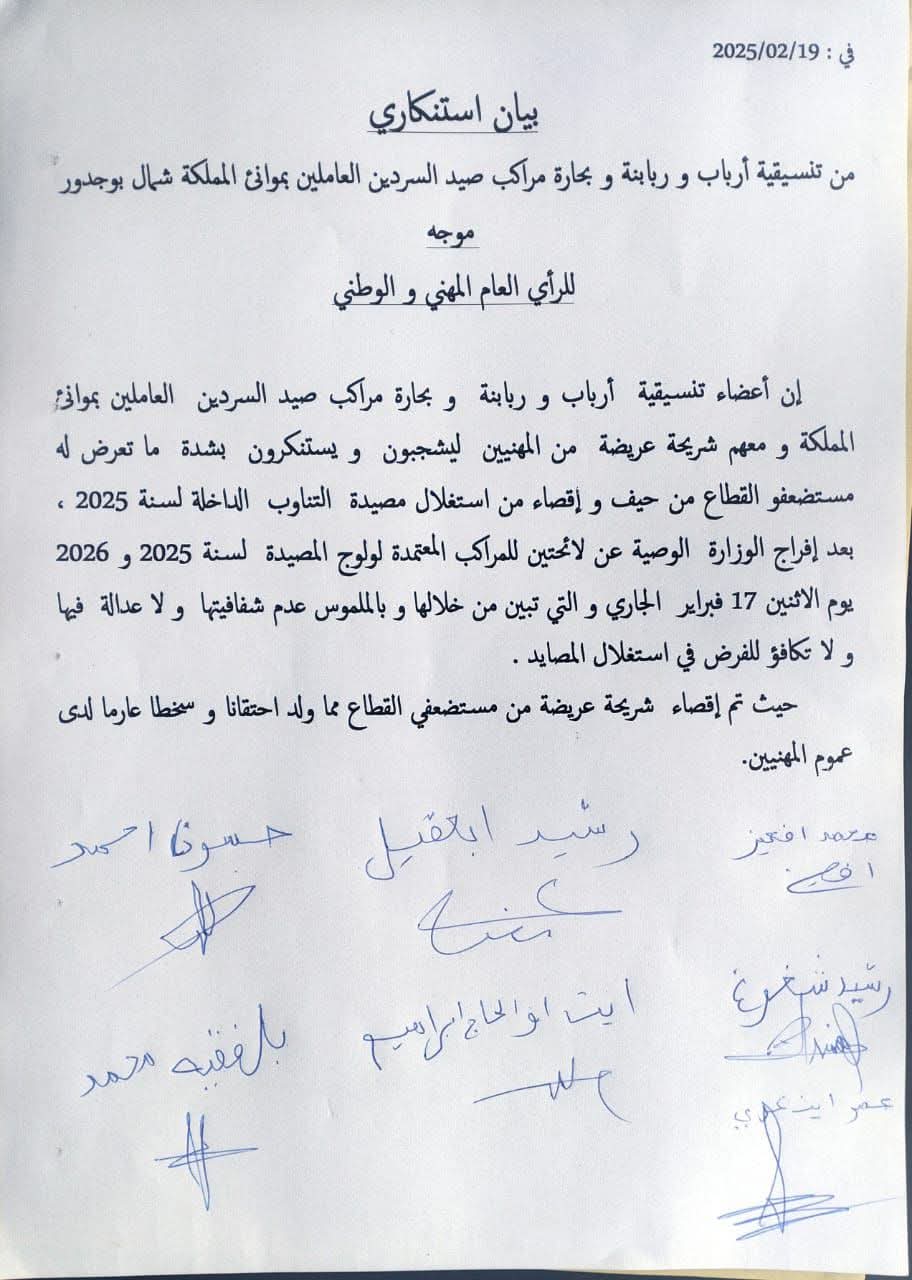 في : 2025/02/19
بيان استنكاري
من تنسيقية أرباب و ربابنة و بحارة مراكب صيد السردين العاملين بموانئ المملكة شمال بوجدور
موجه
للرأي العام المهني و الوطني
إن أعضاء تنسيقية أرباب و ربابنة و بحارة مراكب صيد السردين العاملين بموانئ
المملكة و معهم شريحة عريضة من المهنيين ليشجبون و يستنكرون بشدة ما تعرض له
مستضعفو القطاع من حيف و إقصاء من استغلال مصيدة التناوب الداخلة لسنة 2025 ،
بعد إفراج الوزارة الوصية عن لائحتين للمراكب المعتمدة لولوج المصيدة لسنة 2025 و 2026
يوم الاثنين 17 فبراير الجاري و التي تبين من خلالها و بالملموس عدم شفافيتها و لا عدالة فيها
و لا تكافؤ للفرض في استغلال المصايد .
حيث تم إقصاء شريحة عريضة من مستضعفي القطاع مما ولد احتقانا و سخطا عارما لدى
عموم المهنيين.
محمد
رشيد ابعقيل
حسونا احمد
رشيد
ايت او الحاج ابراهيم
بلفقيه محمد
عمر ايت